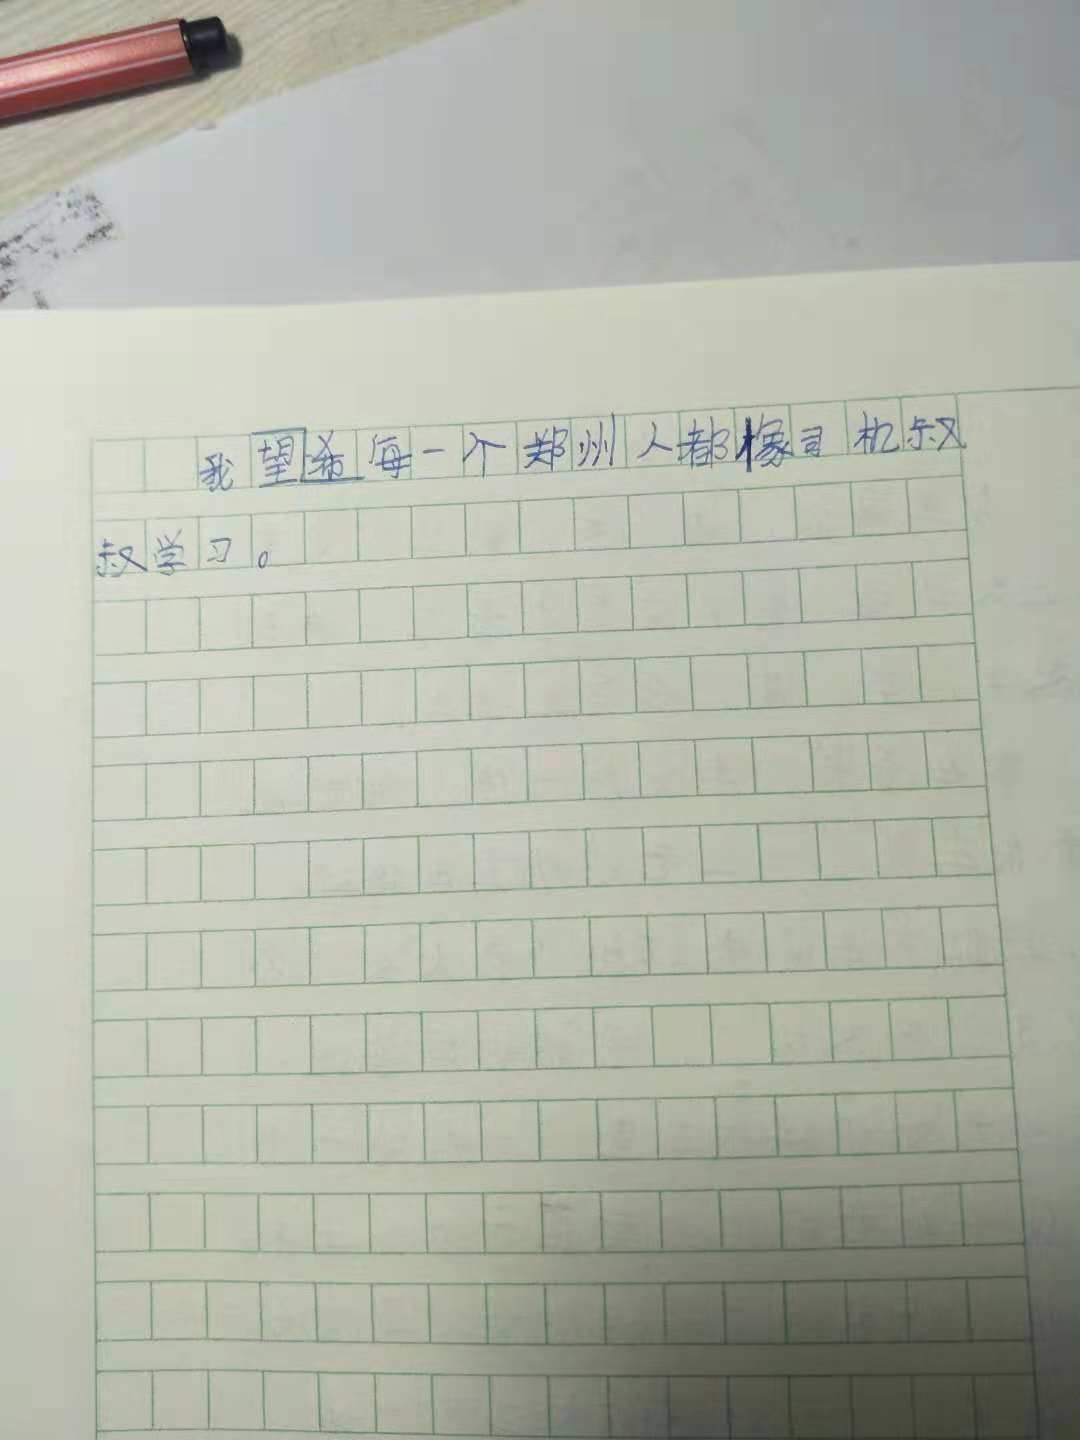 我望希每一个郑州人都像司机叔
叔学习。